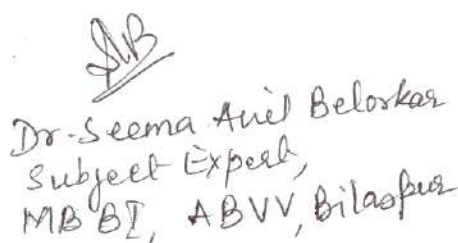 Dr. Seema Anil Belorkar
Subject Expert,
MB BI, ABVV, Bilaspur